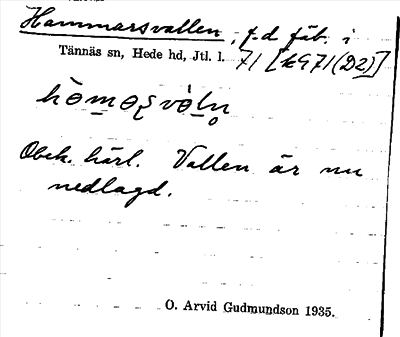 Hammarsvallen, f.d fäb. i
Tännäs sn, Hede hd, Jtl. l. 71 [k971(D2)]
Obek. härl. Vallen är nu
nedlagd.
O. Arvid Gudmundson 1935.